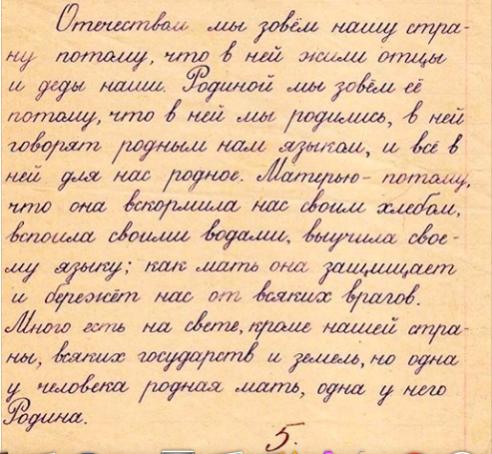 Отечеством мы зовём нашу стра-
ну потому, что в ней жили отцы
и деды наши. Родиной мы зовём её
потому, что в ней мы родились, в ней
говорят родным нам языком, и всё в
ней для нас родное. Матерью- потому,
что она вскормила нас своим хлебом,
вспоила своими водами, выучила свое-
му языку; как мать она защищает
и бережёт нас от всяких врагов.
Много есть на свете, кроме нашей стра-
ны, всяких государств и земель, но одна
у человека родная мать, одна у него
Родина.
5.